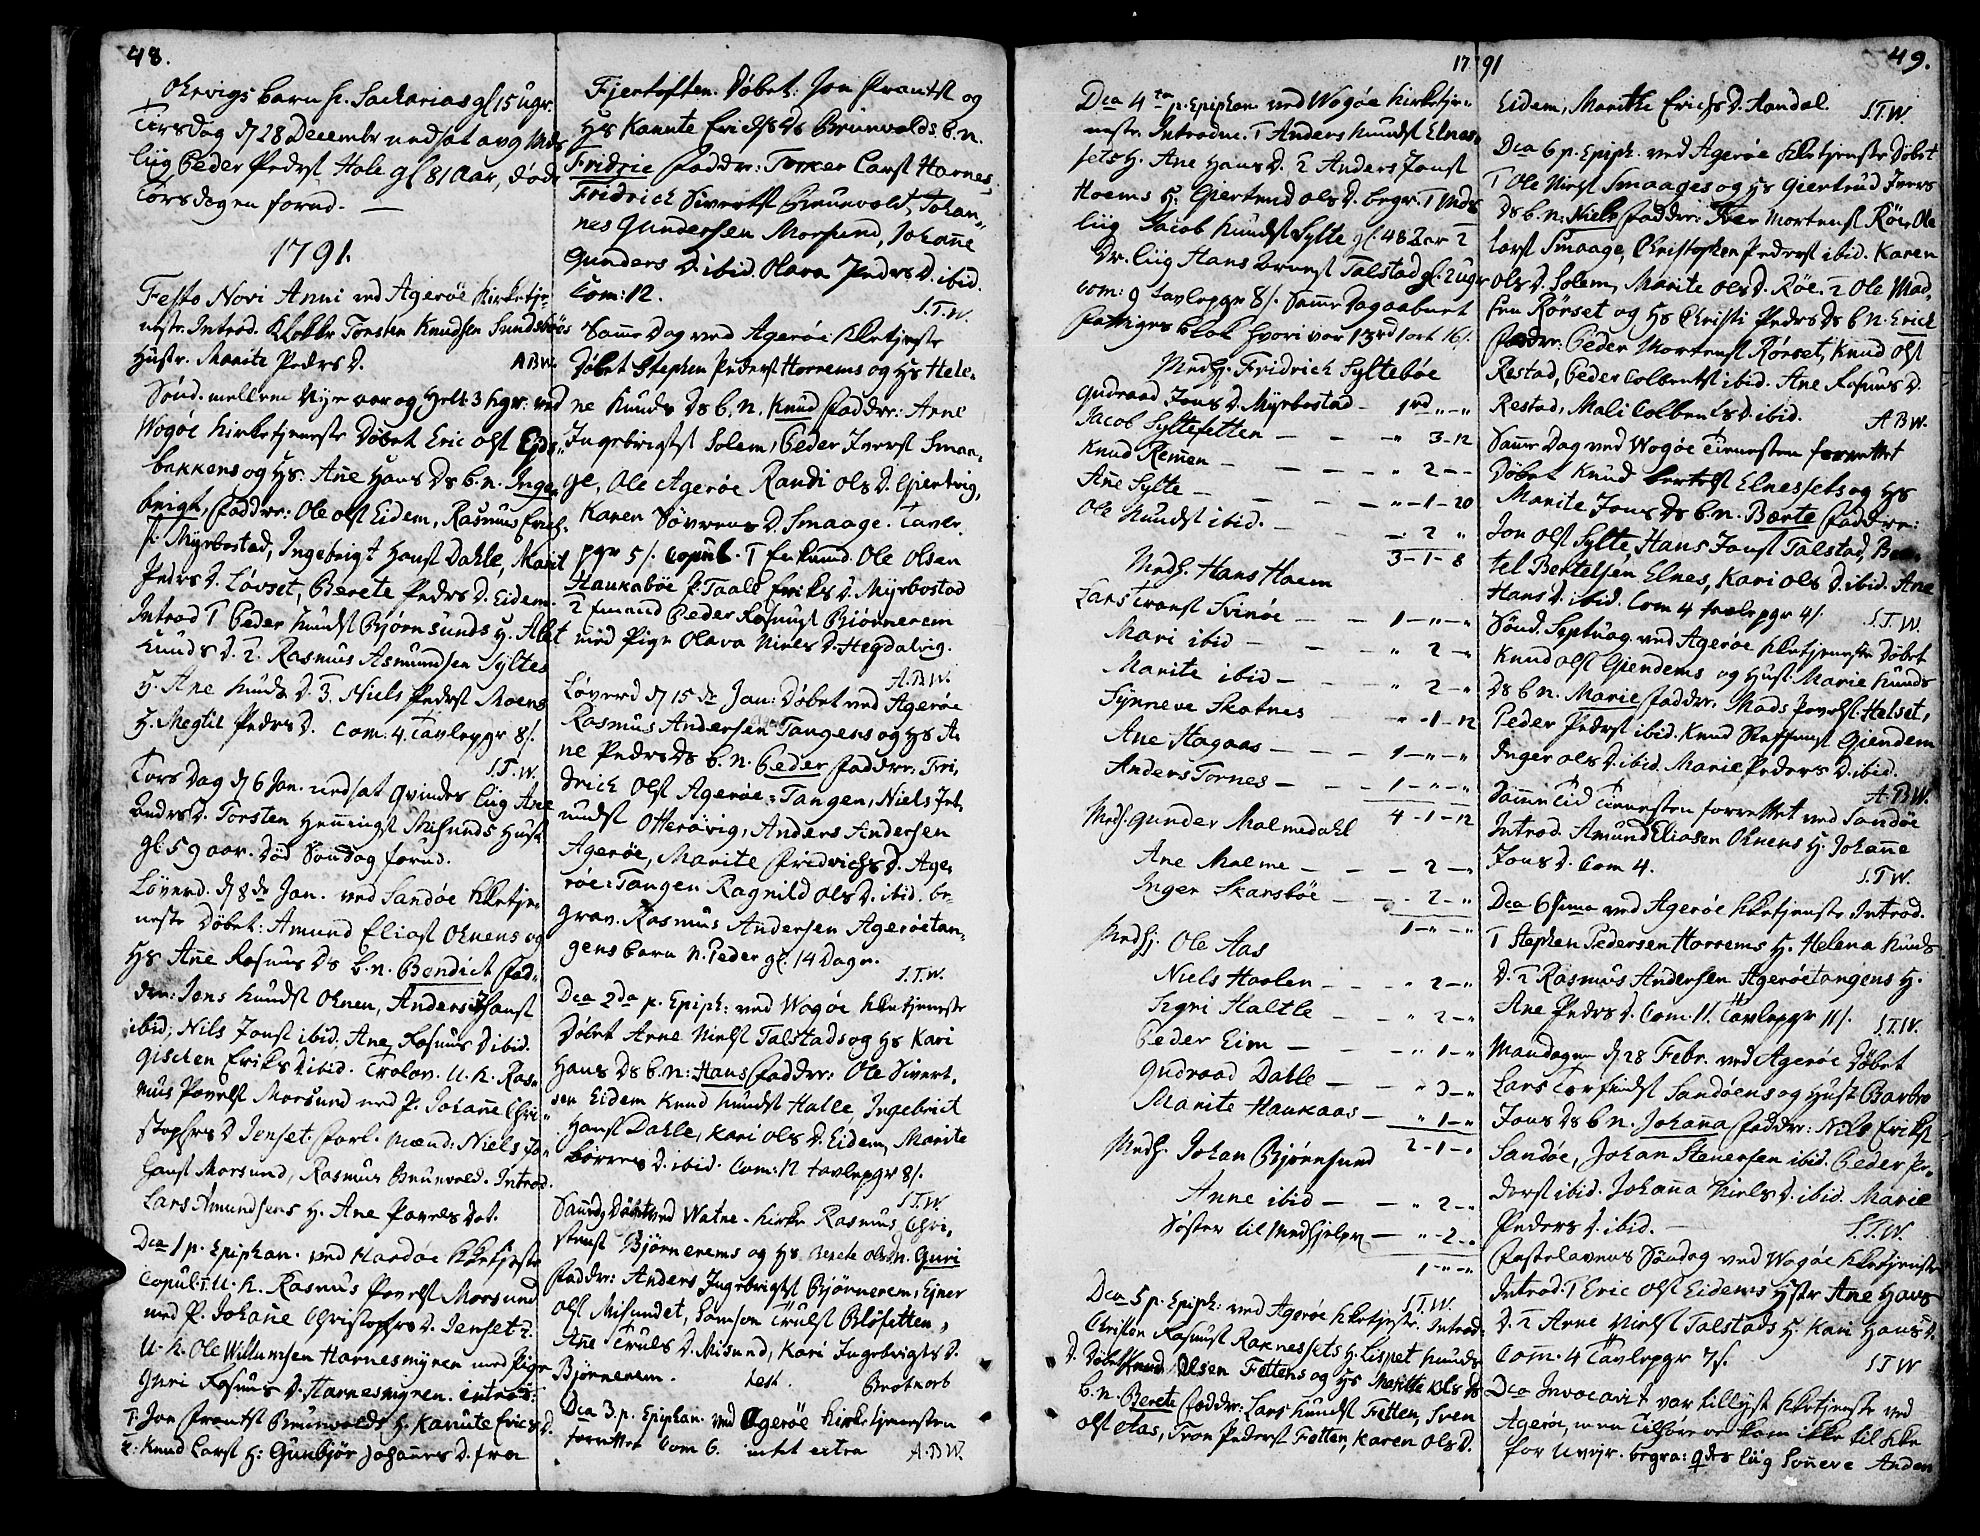 48.
Ohrvigs barn k. Sacharias gl 15 Ugr.
Tirsdag d 28 Decembr nedsat
liig Peder Pedersl Hole gl 81 Aar, døde
Torsdagen forud. —
1791.
Festo Novi Anni ved Agerøe Kirketje
neste. Introd. Klokker Torsten Knudsen Sundsbøes
Hustr. Marite Peders D. A B W.
Sönd. mellem Nyeaar og Hell. 3 Kgr. ved
Wogøe Kirketjeneste Döbet Eric Olsl Ejds
bakkens og Hs. Añe Hans Ds b. n. Inge
brigt, faddr: Ole olsl Eidem, Rasmus Erich
Myrbostad, Ingebrigt Hansl Dahle, Marit
Peders D. Løvset, Berete Peders D. Eidem.
Introd 1 Peder Knudsl Bjørnsunds H. Alet
Knuds D. 2. Rasmus Asmundsen Syltes
H. Ane Knuds D. 3. Niels Pedersl Moens
H. Megtil Peders D. Com. 4. Tavlepgr 8/.
S. T. W.
Tors Dag d 6 Jan. nedsat Qvindes liig Ane
Anders D. Torsten Hennigs Misunds Hust
gl. 59 aar. Död Söndag forud.
Löverd. d 8de Jan. ved Sandøe Kketje
neste Döbet: Amund Eliasl Ohnens og
Hs Añe Rasmus Ds b. n. Bendict fad
dr: Jens Knudsl Ohnen, Anders Hansl
ibid, Nils Jonsl ibid. Ane Rasmus D ibid.
Gischen Eriks D ibid. Trolov. U. K. Ras
mus Povelsl Morsund med P. Johañe Chri
stophrs D Jenset. forl. mænd: Niels Jo
hansl Morsund, Rasmus Brunvold. Introd.
Lars Amundsens H. Ane Povels Dot.
Dca 1 p. Epiphan. ved Harøe Kketjeste
Copul. 1 U. K. Rasmus Povelsl Morsund
med P. Johañe Christophrs D. Jenset 2.
U. K. Ole Willumsen Harnesmyren med Pige
Guri Rasmus D. Harnesmyren. introd:
1. Jon Frantsl Brunvolds H. Kanute Erics D.
2: Knud Larsl H: Gunbjør Johañes D. fra
Fjertoften. Döbet: Jon Frantsl og
Hs Kanute Erichs Ds Brunvolds b. n.
Fridric faddr: Torker Larsl Harnes,
Fridrich Sivertsl Brunvold, Johan
nes Gundersen Morsund, Johañe
Gunders D. ibid. Olava Peders D. ibid.
Com: 12.
S. T. W.
Sam̃e Dag ved Agerøe Kketjeste
Döbet Stephen Pedersl Horrems og Hs Hele
ne Knuds Ds b. n. Knud faddr: Arne
Ingebrigtsl Solem, Peder Iversl Smaa
ge, Ole Agerøe Randi Ols D. Gjertvig,
Karen Sövrens D. Smaage. Tavle
pgr 5/. Copul. 1 Enkmd. Ole Olsen
Haukabøe P. Taale Eriks D. Myrbostad
2 Enkmd Peder Rasmusl Bjørnerem
med Pige Olava Niels D. Hegdalvig.
A. B W.
Löverd d 15de Jan: Döbet ved Agerøe
Rasmus Andersen Tangens og Hs A
ne Peders Ds b. n. Peder faddr: Fri
drich Olsl Agerøe-Tangen, Niels
mundsl Otterøvig, Anders Andersen
Agerøe, Marite Fridrichs D. Age
røe-Tangen Ragnild Ols D. ibid. be
grav. Rasmus Andersen Agerøetan
gens barn N. Peder gl. 14 Dage.
S. T. W.
Dca 2da p. Epiph: ved Wogøe Kketjeneste
Döbet Arne Nielsl Talstads og Hs Kari
Hans Ds b. n: Hans faddr: Ole Sivert
sen Eidem Knud Knudsl Halle Ingebrict
Hansl Dahle, Kari Ols D. Eidem, Marite
D. ibid. Com: 12 Tavlepgr 8/.
S. T. W.
Sam̃e Dag Döbet ved Watne-Kirke Rasmus Chri
stensl Bjørnerems og Hs. Berete Ols Dn. Guri
faddr: Anders Ingebrigtsl Bjørnerem, Ejner
Olsl Misundet, Samson Trulsl Blöfetten,
Añe Truls D. Misund, Kari Ingebrigts D.
Bjørnerem. test. Brotnorb
Dca 3. p. Epiphan. ved Agerøe Kirketjenesten
forrettet Com 6. intet extra A. B W.
1791
49.
Dca 4ta p. Epiphan ved Wogøe Kirketje
neste. Introdue. 1 Anders Knudsl Elnes
sets H. Ane Hans D. 2 Anders Jonsl
Hoems H. Gjertrud Ols D. begr. 1 Mds
liig Jacob Knudsl Sylte gl. 48 Aar 2
Dr. liig Hans Arnesl Talstad gl. 2 Ugr
Com: 9 Tavlepgr 8/. Sam̃e Dag aabnet
fattiges blok hvori var 13 rd 1 ort 16/.
Medhj. Fridrich Syltebøe
Gudraad Jons D. Myrbostad — 1 rd " — "
Jacob Syltesetten — — — " 3 — 12
Knud Remen — — — — " 2 — —
Añe Sylte — — — — " — 1 — 20
Ole Knudsl ibid. — — — — 2 "
3 — 1 — 8
Medhj. Hans Hoem
Lars Svinøe — — 1 — " — "
Mari ibid — — — " 2 — "
Marite ibid — — — " 2 — "
Synneve Skotnes — " — 1 — 12
Ane Hagaas — — — 1 — " — "
Anders Tornes — — — 1 — " — "
4 — 1 — 12
Medhj. Gunder Malmedahl
Ane Malme — — — — 2 — "
Inger Skarsbøe — — — 2 — "
1 — " — "
Medhj. Ole Aas
Niels Haalen — — — " 2 — "
Sigri Haltle — — " 2 — "
Peder Eim — — — " 1 — "
Gudraad Dahle — — " 3 — "
Marite Haukaas — " 1 — "
2 — 1 — "
Medhj. Johan Bjørnsund
Anne ibid — — " 2 — "
Söster til Medhjelper — " — 2 — "
1 — " — "
S. T. W.
Dca 5 p. Epiph: ved Agerøe Kketjeste. Introd.
Christen Rasmusl Raknessets H. Lispet Knuds
D. Döbet Knud Olsen Fettens og Hs Marite Ols Ds
b. n. Berete faddr: Lars Knudsl Fetten, Sven
Olsl Aas, Tron Pedersl Fetten, Karen Ols D.
Eidem, Marithe Erichs D. Handal.
S. T. W.
Dca 6 p. Epiph. ved Agerøe Kketjenste Döbet
1 Ole Nielsl Smaages og Hs Gjertrud Ivers
Ds b. n: Niels faddr: Iver Mortensl Röe, Ole
Larsl Smaage, Christopher Pedersl ibid. Karen
Ols D. Solem, Marite Ols D. Röe. 2 Ole Mad
sen Rørset og Hs Christi Peders Ds b. n. Erich
faddr: Peder Mortensl Rørset, Knud Olsl
Restad, Peder Colbentsl ibid. Ane Rasmus D.
Restad, Mali Colbents D. ibid.
A B W.
Sam̃e Dag ved Wogøe Tienesten forrettet
Döbet Knud bertelsl Elnessets og Hs
Marite Jons Ds b. n. Berte faddr:
Jon Olsl Sylte, Hans Jonsl Talstad, Ber
tel Bertelsen Elnes, Kari Ols D. ibid. Ane
Hans D. ibid. Com 4 tavlepgr 4/.
S. T. W.
Sönd. Septuag. ved Agerøe Kketjeneste Döbet
Knud Olsl Gjendems og Hust. Marie Knuds
Ds b. n. Marie faddr. Mads Povelsl Helset,
Peder Pedersl ibid. Knud Steffensl Gjendem
Inger Ols D. ibid. Marie Peders D. ibid.
A. B W.
Sam̃e Tid Tienesten forrettet ved Sandøe
Introd. Amund Eliasen Ohnens H. Johañe
Jons D. Com 4.
S. T W.
Dca 6sima ved Agerøe Kketjenste. Introd.
1 Stephen Pedersen Horrems H. Helena Knuds
D. 2 Rasmus Andersen Agerøetangens H.
Ane Peders D. Com: 11. Tavlepgr 11/.
S. T. W.
Mandagen d 28 Febr. ved Agerøe Döbet
Lars Torfindsl Sandøens og Hust Barbro
Jons Ds b. n. Johaña faddr: Nils Erichsl
Sandøe, Johan Stenersen ibid. Peder Pe
dersl ibid. Johaña Niels D. ibid. Marie
Peders D. ibid. —
S. T. W.
Fastelavens Söndag ved Wogøe Kketjenste
Introd. 1 Eric Olsl Eidems Hstr Ane Hans
D. 2 Arne Nielsl Talstads H. Kari Hans D.
Com̃. 4 Tavlepgr 7/.
S T W
Dca Invocavit var tillyst Kketjenste ved
Agerøe, men Tilhörere kom ikke til Kke
for Uvejr. begra: Qds liig Soñeve Anden